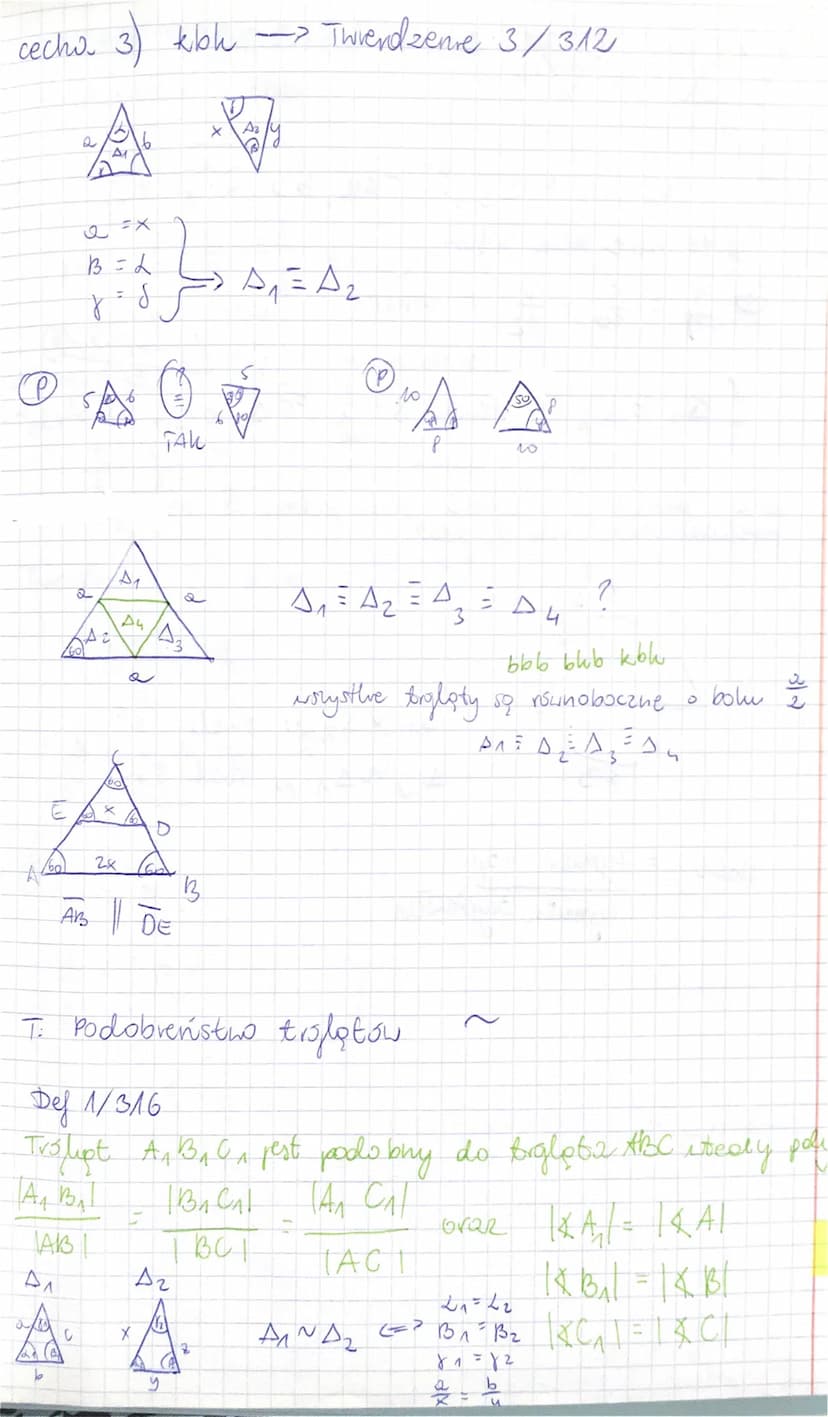 cecha 3) kbk → Twierdzenie 3/312
a b Δ1 x Δ2 y
a = x
β = α
γ = δ
⇒ Δ1 ≡ Δ2
P 5 6 ? ≡ 5 6 P 10 8 50 8 10
TAK
Δ1
a a
Δ2 Δ4 Δ3
60
a
Δ1 ≡ Δ2 ≡ Δ3 ≡ Δ4 ?
bbb bkb kbk
wszystkie trójkąty są równoboczne o boku a/2
Δ1 ≡ Δ2 ≡ Δ3 ≡ Δ4
C
60
E 60 x 60 D
A 60 2x 60 B
AB || DE
T: Podobieństwo trójkątów ~
Def 1/316
Trójkąt A1B1C1 jest podobny do trójkąta ABC wtedy
|A1B1|/|AB| = |B1C1|/|BC| = |A1C1|/|AC| oraz |∢A1| = |∢A|
|∢B1| = |∢B|
|∢C1| = |∢C|
Δ1 Δ2
a c b x z y
Δ1 ~ Δ2 ⇔
α1 = α2
β1 = β2
γ1 = γ2
a/x = b/y